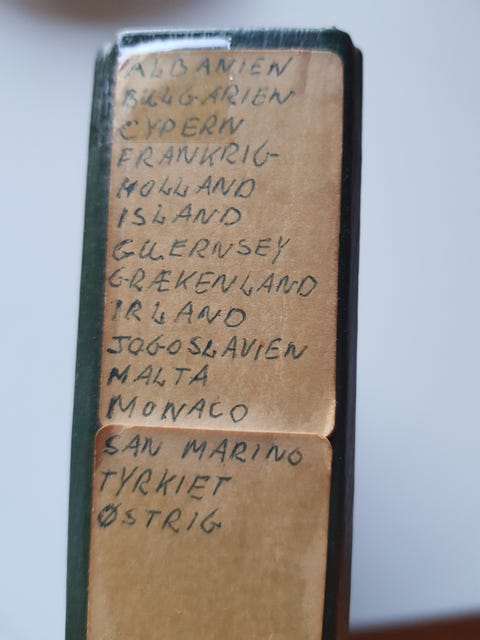 ALBANIEN
BULGARIEN
CYPERN
FRANKRIG
HOLLAND
ISLAND
GUERNSEY
GRÆKENLAND
IRLAND
JOGOSLAVIEN
MALTA
MONACO
SAN MARINO
TYRKIET
ØSTRIG